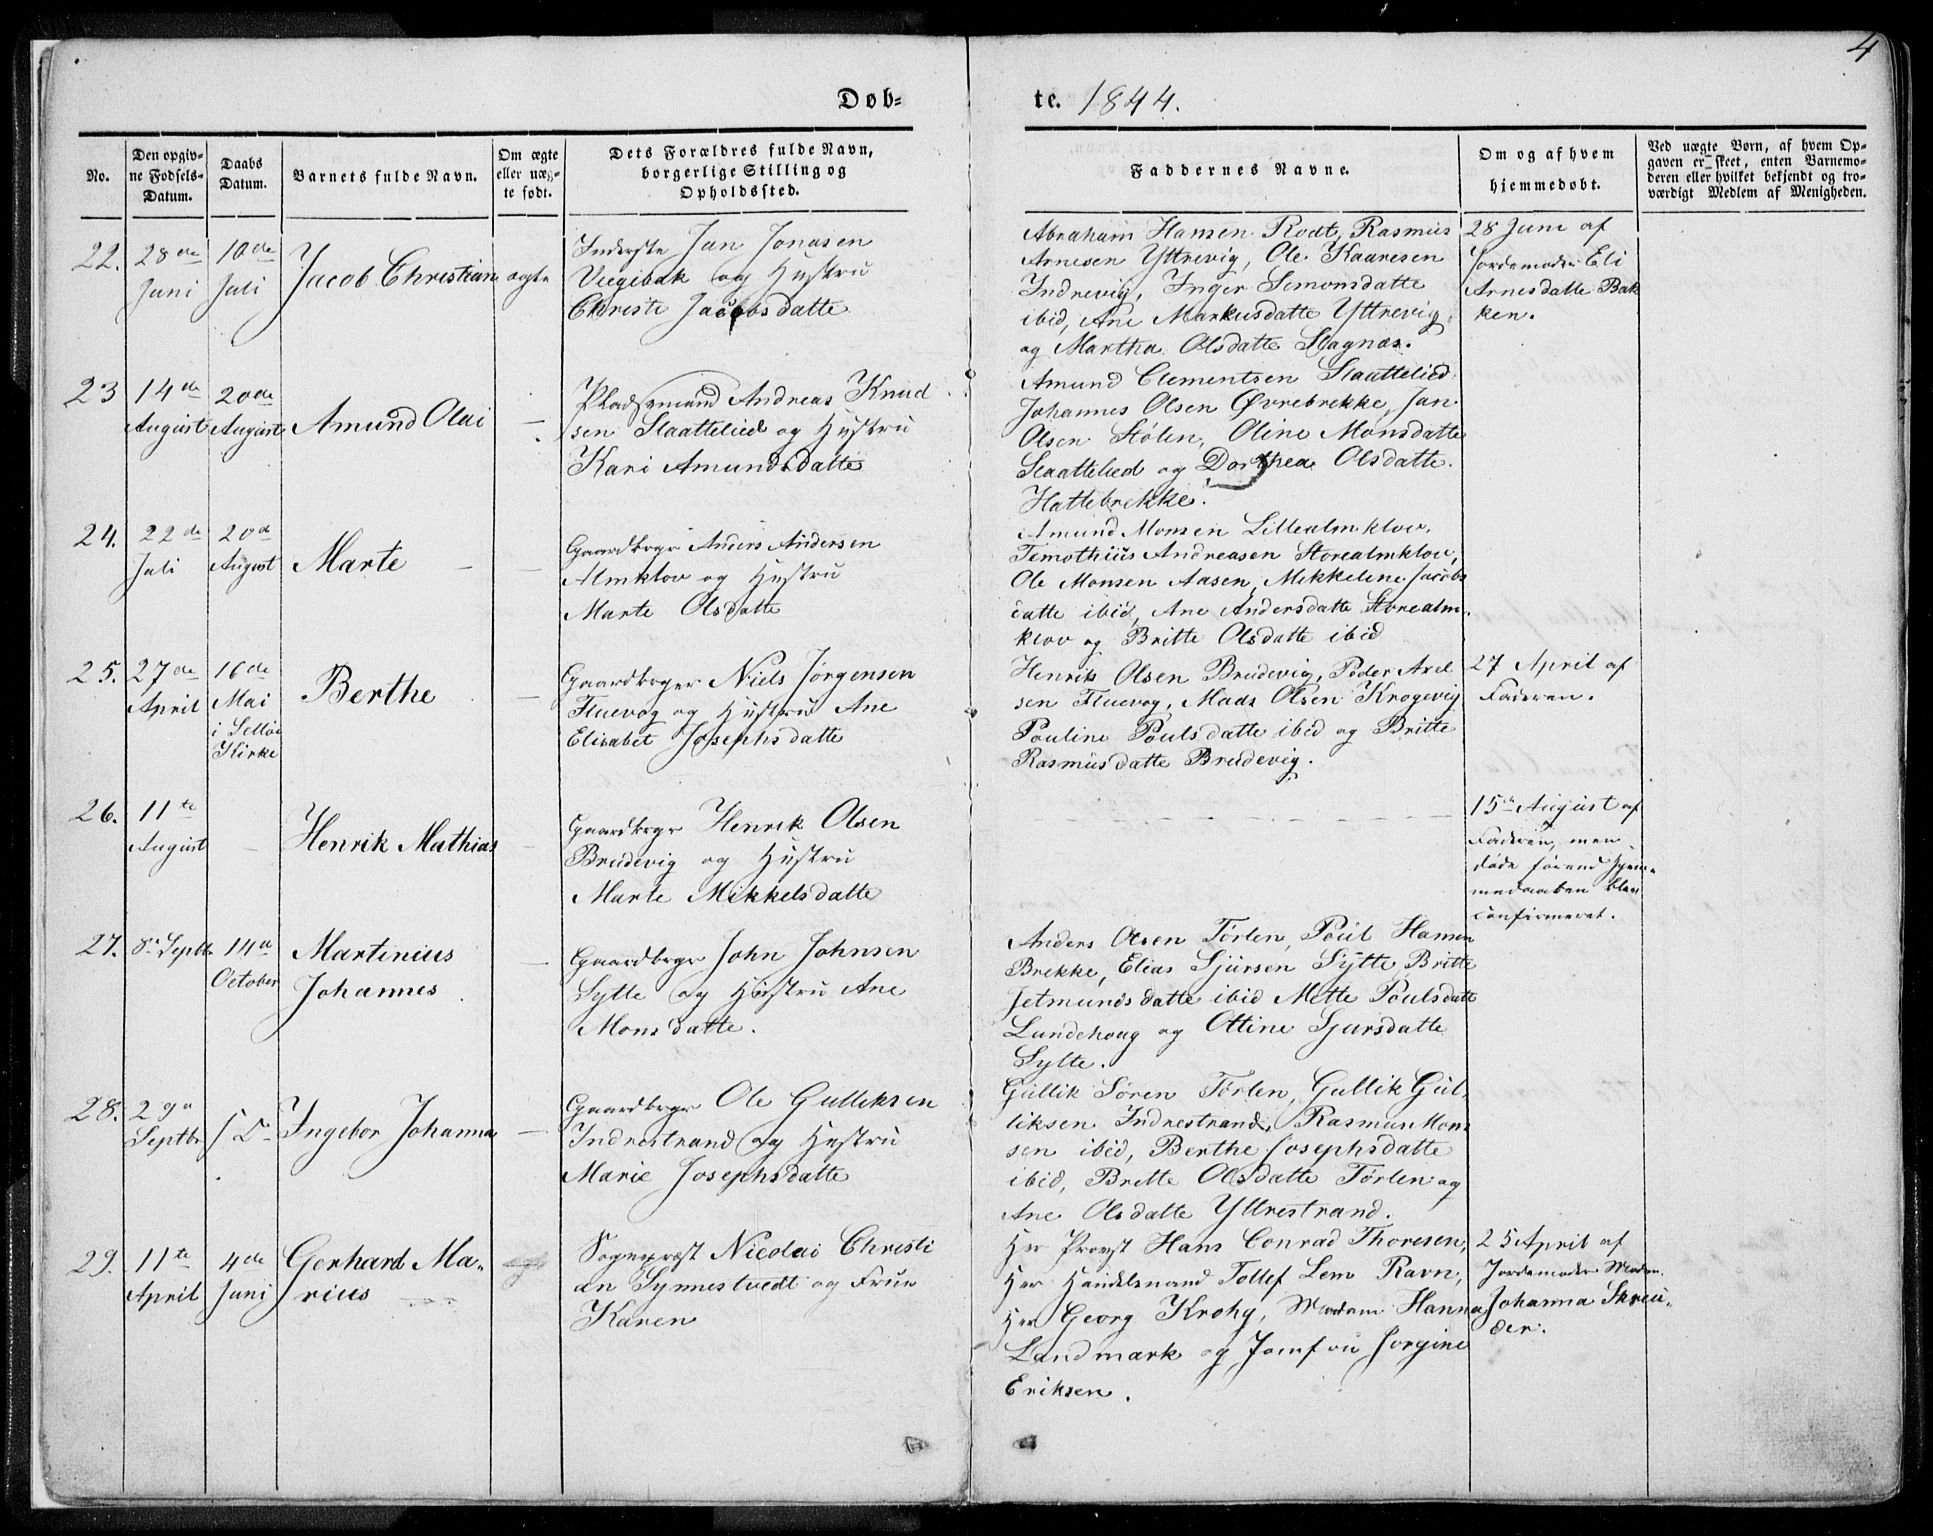 4
Døb=
te. 1844.
No.
Den opgiv-
ne Fødsels-
Datum.
Daabs
Datum.
Barnets fulde Navn.
Om ægte
eller uæg-
te født.
Dets Forældres fulde Navn,
borgerlige Stilling og
Opholdssted.
Faddernes Navne.
Om og af hvem
hjemmedøbt.
Ved uægte Børn, af hvem Op-
gaven er skeet, enten Barnemo-
deren eller hvilket bekjendt og tro-
værdigt Medlem af Menigheden.
22.
28de
Juni
10de
Juli
Jacob Christian
ægte
Inderste Jan Jonasen
Viegibak og Hustru
Christe Jacobsdatte
Abraham Hansen Rodt, Rasmus
Arnesen Yttrevig, Ole Kaaresen
Indrevig, Inger Semonsdatte
ibid, Ane Markusdatte Yttrevig
og Martha Olsdatte Slagnæs.
28 Juni af
Jordemoder Eli
Arnesdatte Bak
ken.
23
14de
August
20de
August
Amund Olai
—
Pladsemand Andreas Knud
sen Slaattelied og Hustru
Kari Amundsdatte
Amund Clementsen Slaattelied
Johannes Olsen Øvrebrekke, Jan
Olsen Stølen, Oline Monsdatte
Slaattelied og Dorthea Olsdatte
Hattebrekke.
24.
22de
Juli
20d
August
Marte
—
Gaardbrgr Anders Andersen
Almklov og Hustru
Marte Olsdatte
Amund Monsen Lillealmklov,
Temothius Andreasen Storealmklov,
Ole Monsen Aasen, Mikkeline Jacobs
datte ibid, Ane Andersdatte Storealm-
klov og Britte Olsdatte ibid
25.
27de
April
16de
Mai
i Selløe
Kirke
Berthe
—
Gaardbrger Niels Jørgensen
Fluevog og Hustru Ane
Elisabet Josephsdatte
Henrik Olsen Brudevig, Peder Axel
sen Fluevog, Mads Olsen Krogevig
Pouline Poulsdatte ibid og Britte
Rasmusdatte Brudevig.
27 April af
Faderen.
26.
11te
August
—
Henrik Mathias
—
Gaardbrgr Henrik Olsen
Brudevig og Hustru
Marte Mikkelsdatte
15de August af
Faderen, men
døde førend Hjem-
medaaben blev
confirmeret.
27.
8de Septbr
14de
October
Martinius
Johannes
—
Gaardbrgr John Johnsen
Sylte og Hustru Ane
Monsdatte.
Anders Olsen Tørlen, Poul Hansen
Brekke, Elias Sjursen Sylte, Britte
Jetmundsdatte ibid Mette Poulsdatte
Lundehoug og Ottine Sjursdatte
Sylte.
28.
29de
Septbr
Ingebor Johanna
—
Gaardbrgr Ole Gulliksen
Indrestrand og Hustru
Marie Josephsdatte
Gullik Søren Tørlen, Gullik Gul-
liksen Indrestrand, Rasmus Mon
sen ibid, Berthe Josephsdatte
ibid, Brette Olsdatte Tørlen og
Ane Olsdatte Yttrestrand.
29.
11te
April
4de
Juni
Gerhard Ma-
rius
Sognepræst Nicolai Christi
an Synnestvedt og Frue
Karen
Her Provst Hans Conrad Thoresen,
Her Handelsmand Tollef Lem Ravn,
Her Georg Krohg, Madam Hanna
Landmark og Jomfru Jorgine
Eriksen.
25 April af
Jordemoder Madm.
Johanna Skreu-
der.